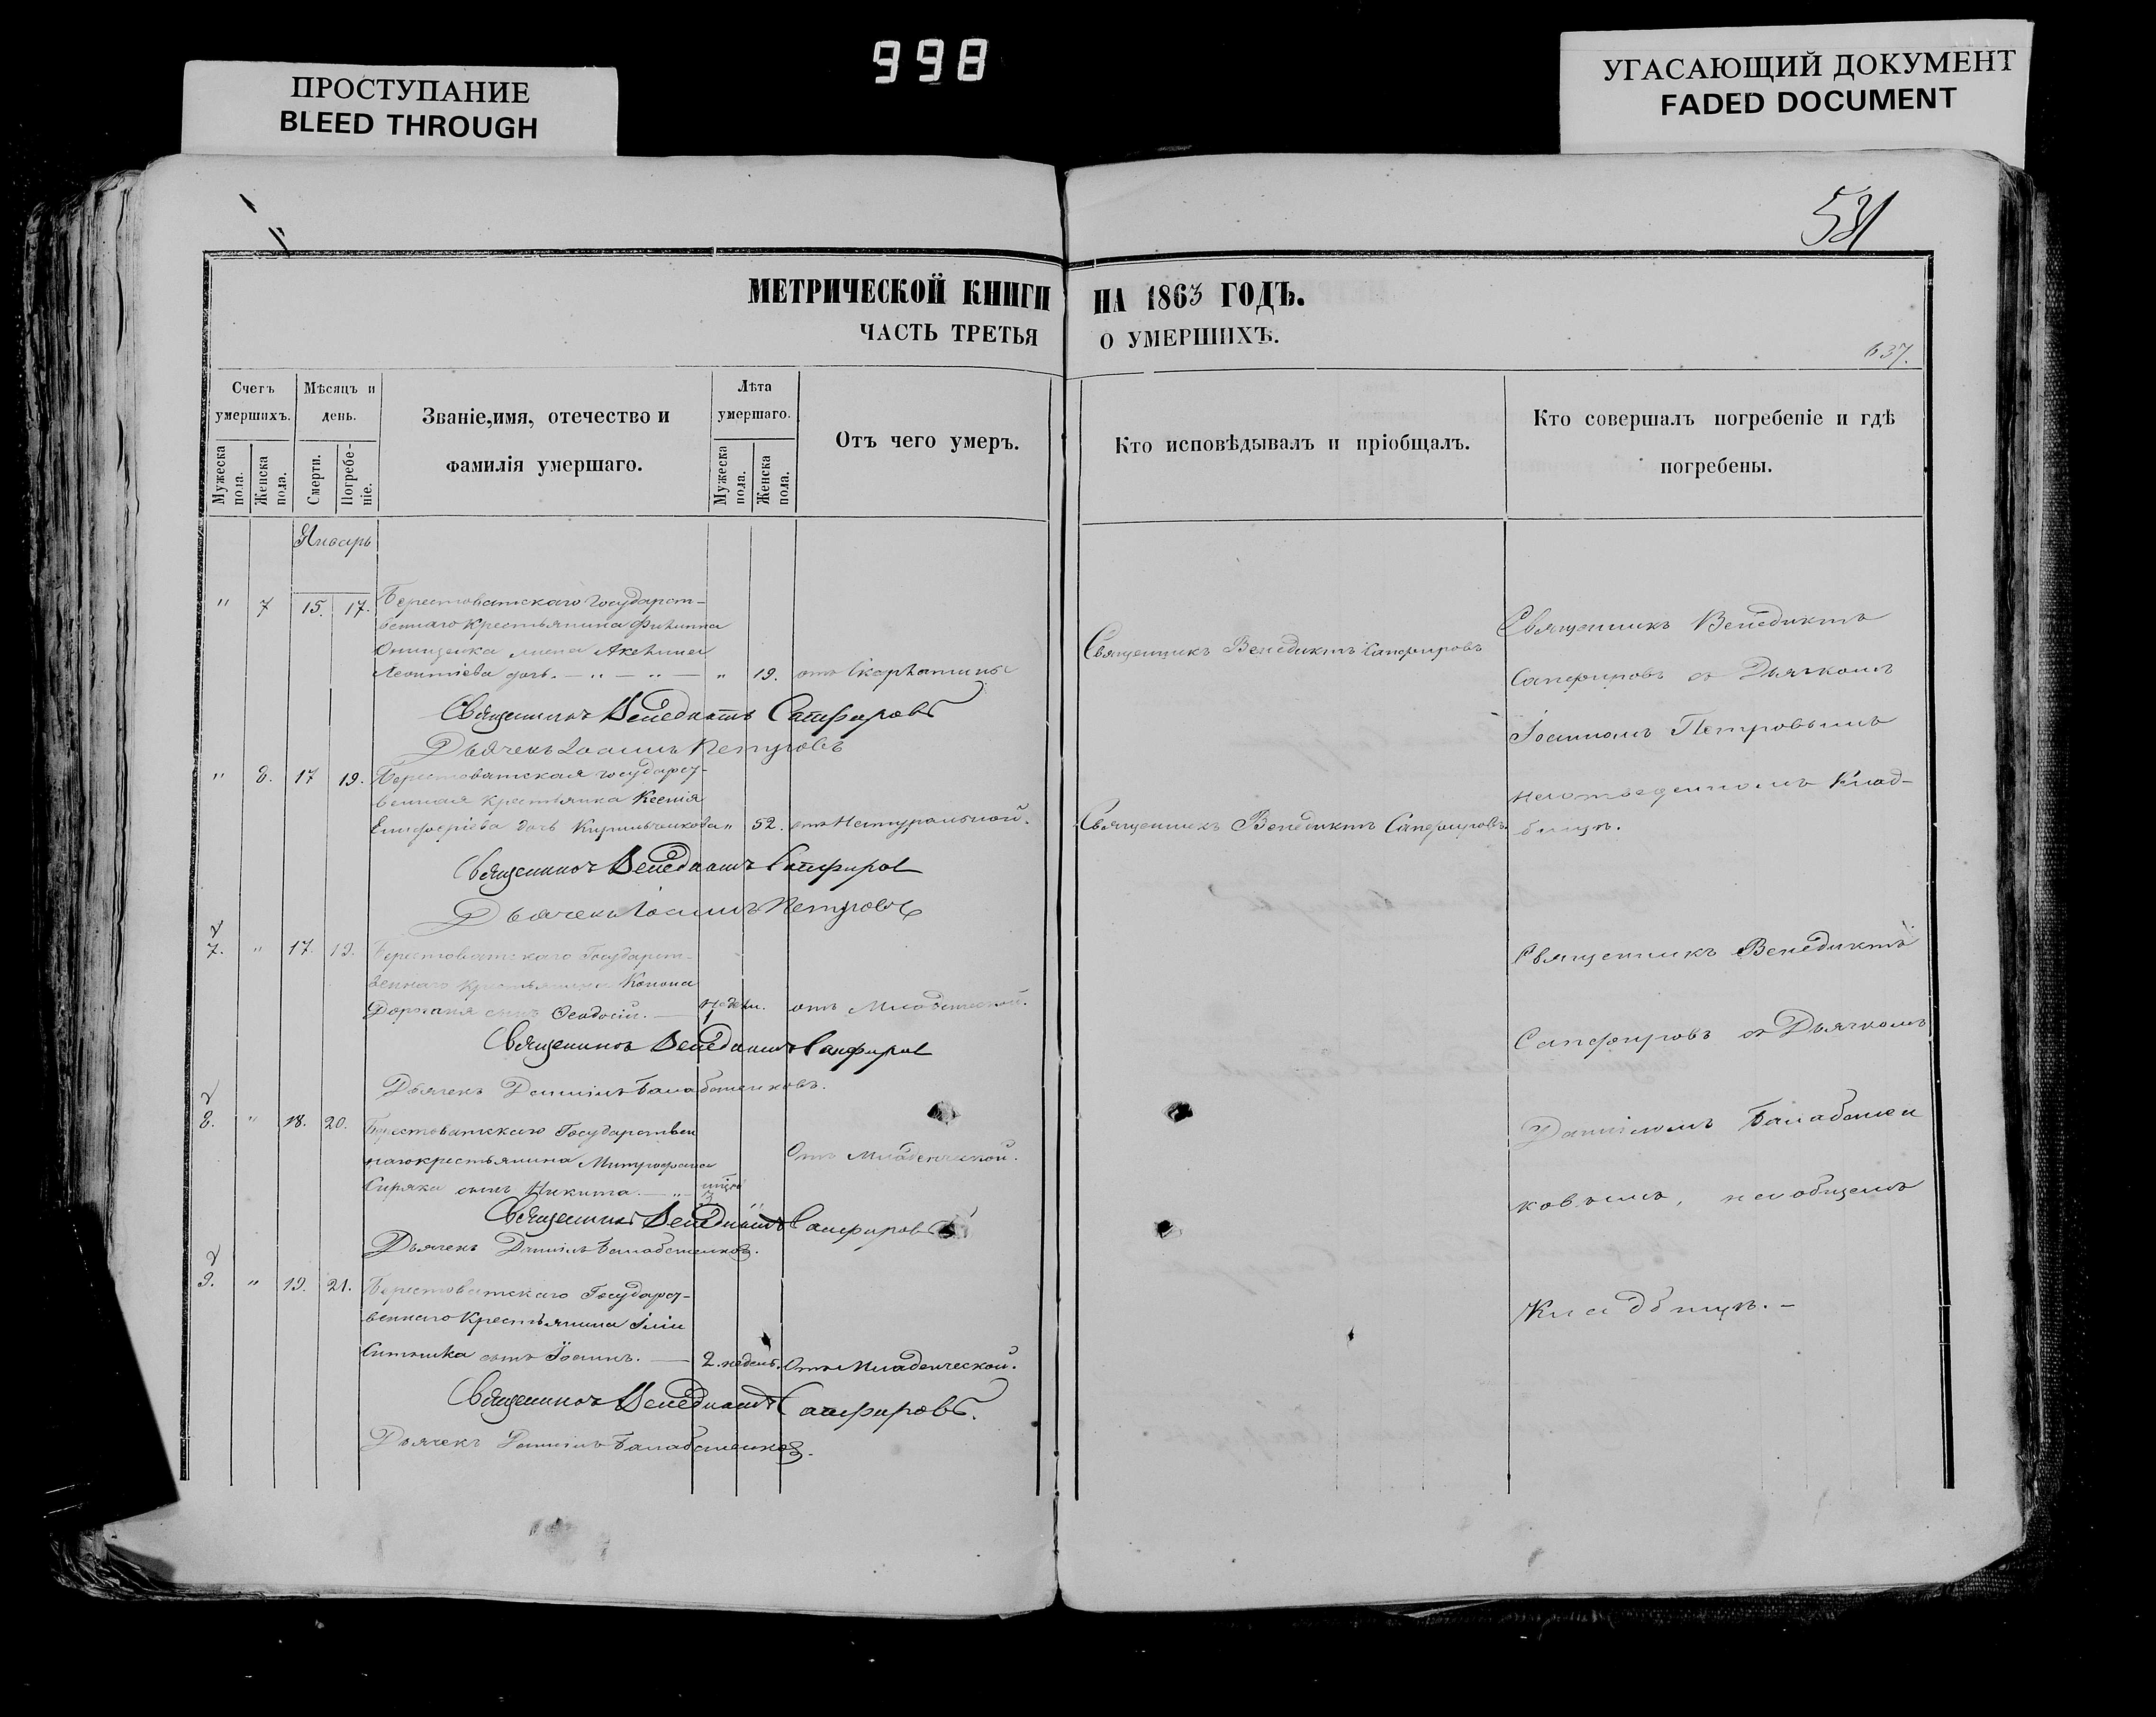 998
ПРОСТУПАНИЕ
BLEED THROUGH
УГАСАЮЩИЙ ДОКУМЕНТ
FADED DOCUMENT
531
МЕТРИЧЕСКОЙ КНИГИ НА 1863 ГОДЪ.
ЧАСТЬ ТРЕТЬЯ О УМЕРШИХЪ.
637.
Счетъ умершихъ.
Мужеска пола.
Женска пола.
Мѣсяцъ и день.
Смерти.
Погребе-ніе.
Званіе, имя, отечество и
фамилія умершаго.
Лѣта умершаго.
Мужеска пола.
Женска пола.
Отъ чего умеръ.
Кто исповѣдывалъ и пріобщалъ.
Кто совершалъ погребеніе и гдѣ
погребены.
Январь
" 7 15. 17. Берестоватскаго Государст-
веннаго крестьянина Филиппа
Онищенка жена Акелина
Леонтіева дочь. — " — " — " 19. отъ Скарлатины
Священникъ Венедиктъ Сапфировъ
Священникъ Венедиктъ Сапфировъ
Дьячекъ Іоаннъ Петровъ
" 8. 17 19. Берестоватская государст-
венная крестьянка Ксенія
Елифоріева дочь Кирильчикова " 52. отъ Натуральной.
Священникъ Венедиктъ Сапфировъ.
Священникъ Венедиктъ Сапфиров
Дьячекъ Іоаннъ Петровъ
Священникъ Венедиктъ
Сапфировъ съ Дьячкомъ
Іоанномъ Петровымъ
на отведенномъ Клад-
бищѣ.
7. " 17. 19. Берестоватскаго Государст-
веннаго крестьянина Конона
сынъ Ѳеодосій. — 1 недели. отъ Младенческой.
Священникъ Венедиктъ Сапфиров
Дьячекъ Даніилъ Балабаненковъ.
8. " 18. 20. Берестоватскаго Государствен
наго крестьянина Митрофана
Сиряка сынъ Никита. — " — 3 Отъ Младенческой.
Священникъ Венедиктъ Сапфировъ
Дьячекъ Даніилъ Балабаненков.
9. " 19. 21. Берестоватскаго Государст-
веннаго Крестьянина Иліи
Ситника сынъ Іоаннъ. — 2. недель. Отъ Младенческой.
Священникъ Венедиктъ Сапфировъ.
Дьячекъ Даніилъ Балабаненков.
Священникъ Венедиктъ
Сапфировъ съ Дьячкомъ
Даніиломъ Балабанен
ковымъ, на общемъ
Кладбищѣ. —